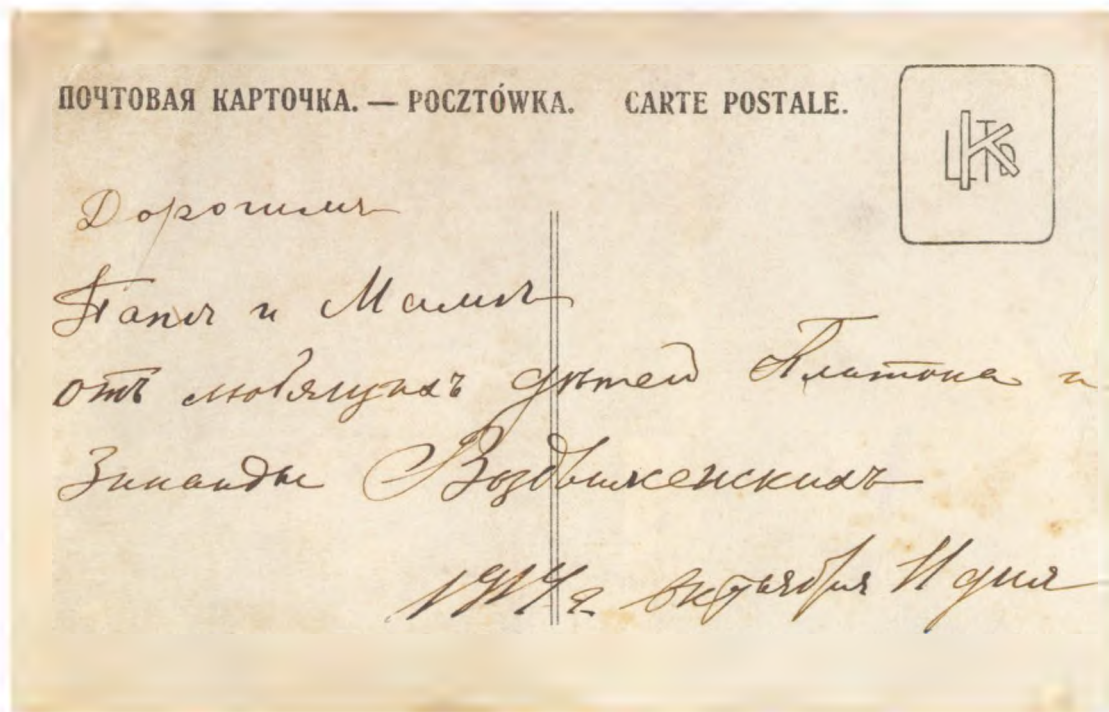 ПОЧТОВАЯ КАРТОЧКА. — POCZTÓWKA. CARTE POSTALE.
Дорогимъ
Папѣ и Мамѣ
отъ любящихъ дѣтей Платона и
Зинаиды Воздвиженскихъ
1914 г. октября 11 дня